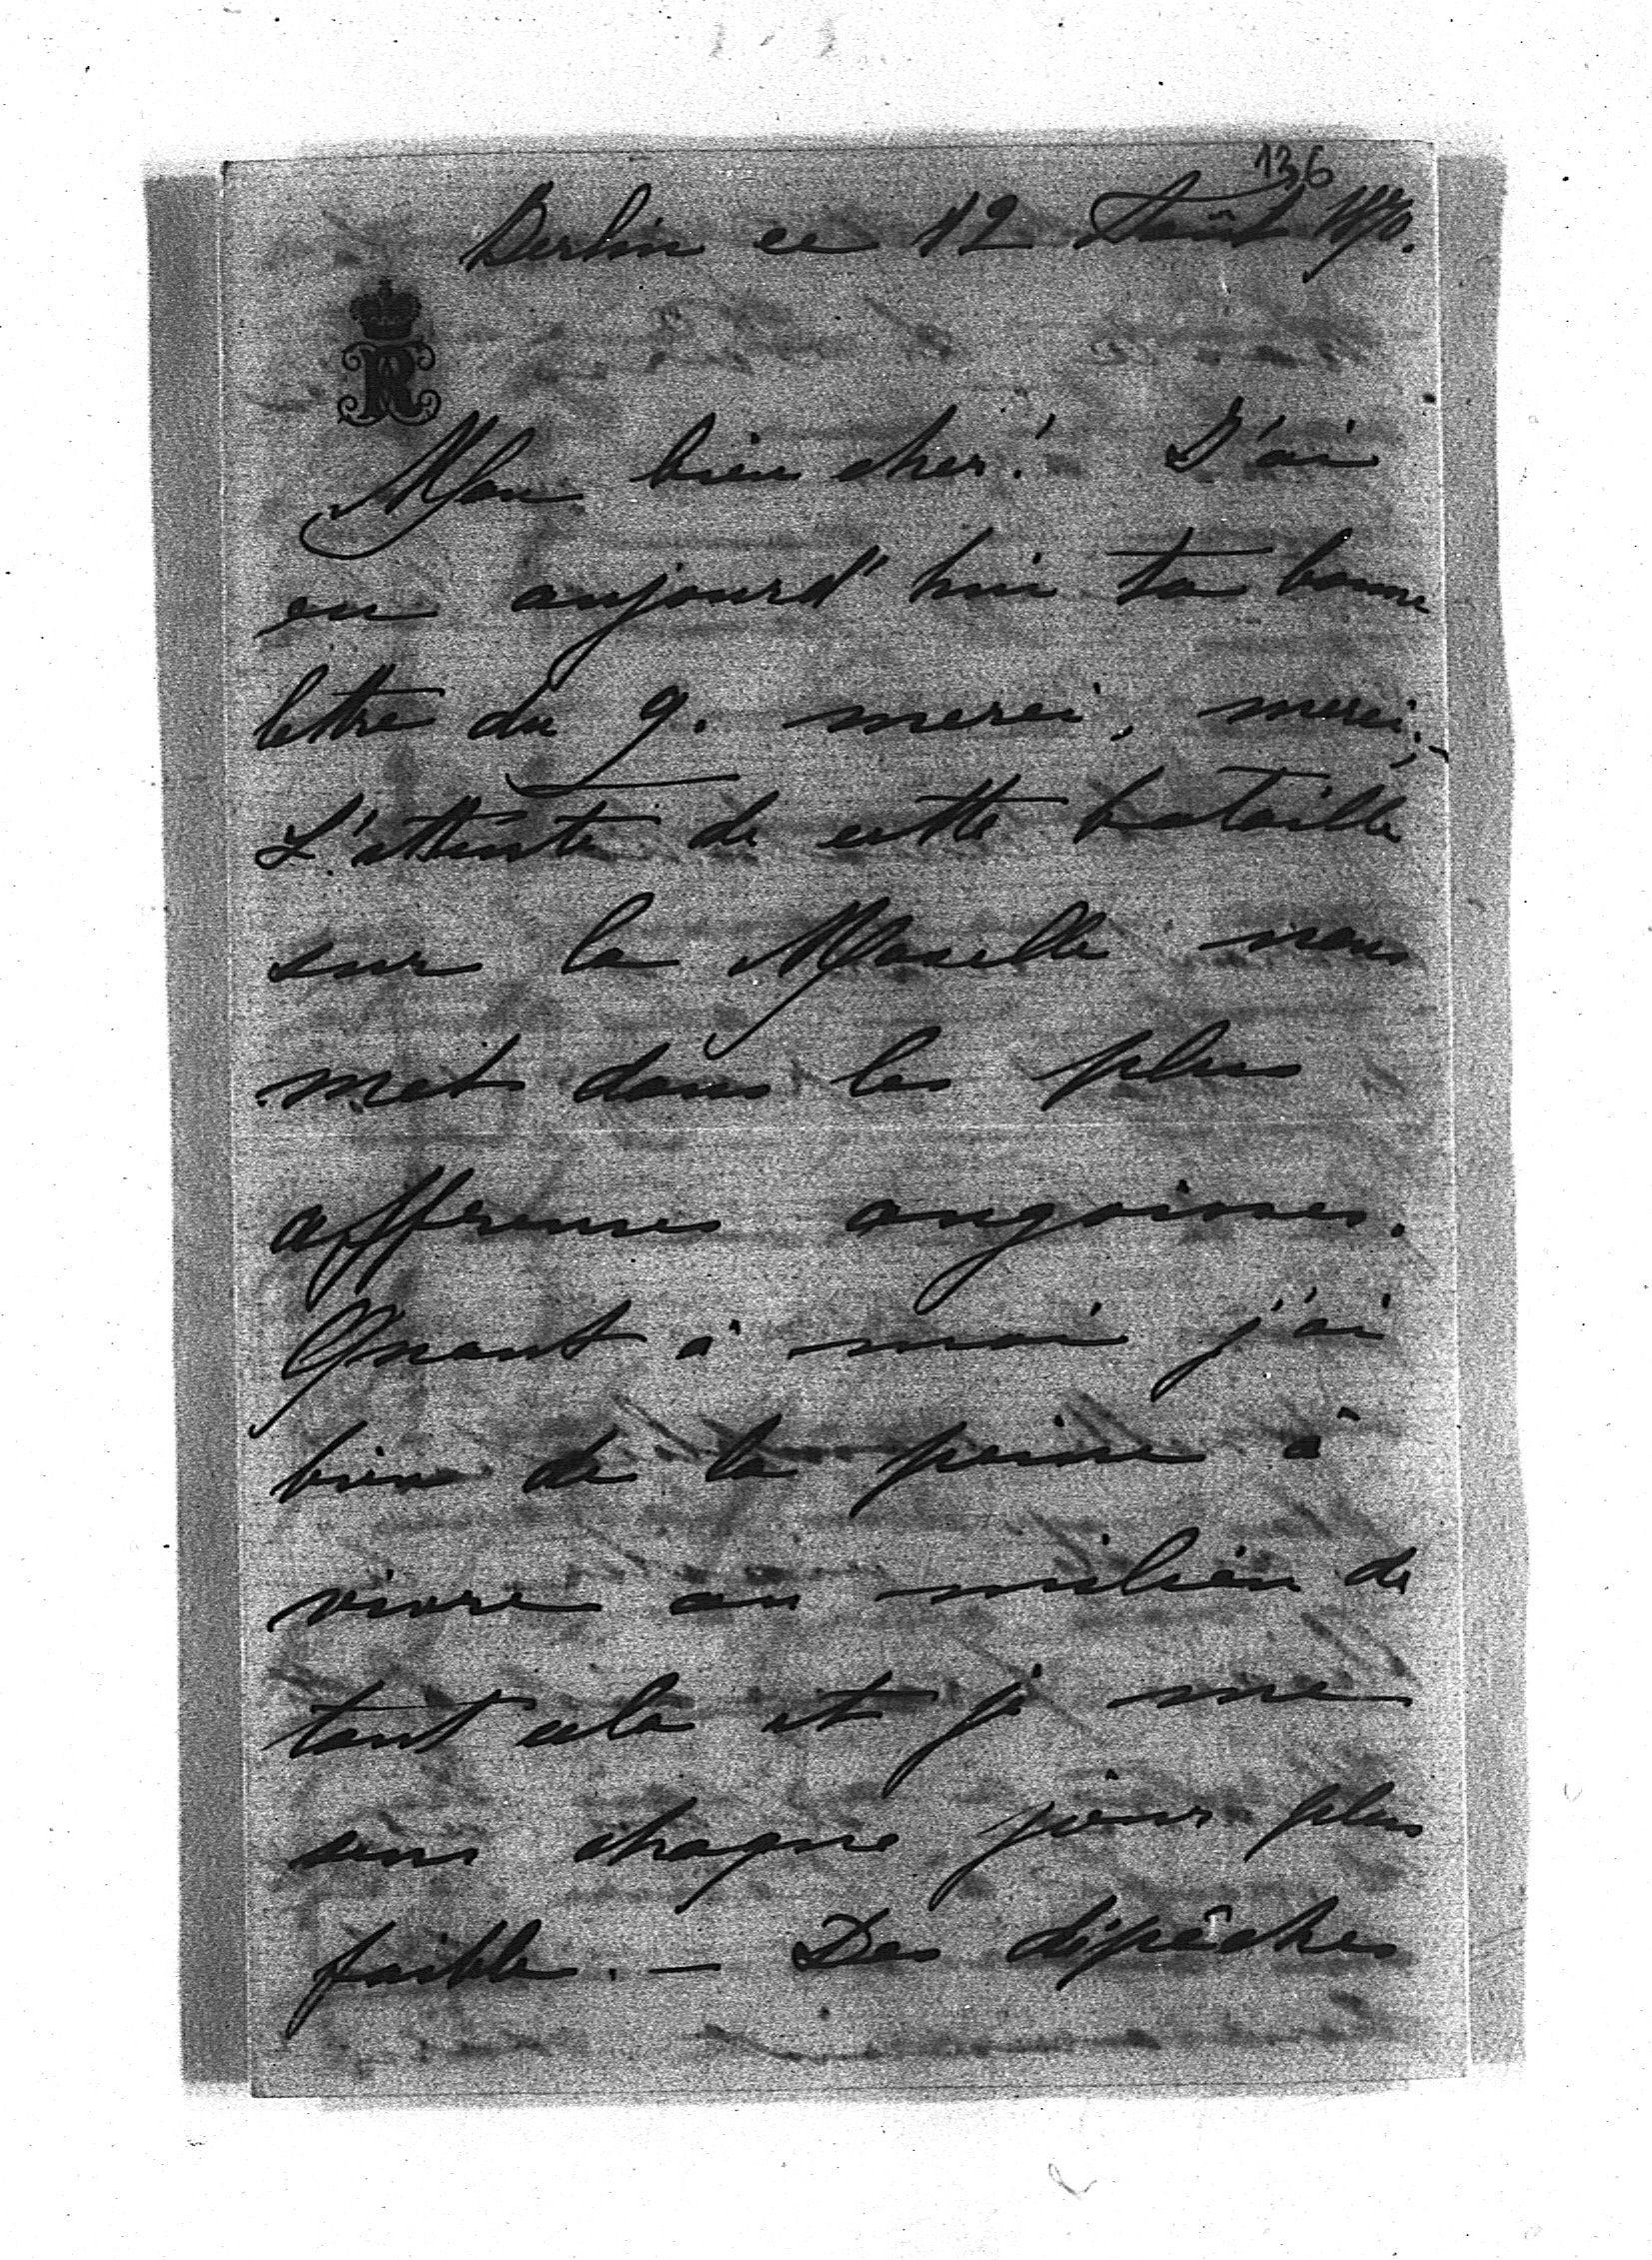 136
Berlin ce 12 Août 1870.
R
Mon bien cher! J'ai
eu aujourd'hui ta bonne
lettre du 9. merci, merci,
L'attente de cette bataille
sur la Moselle nous
met dans les plus
affreuses angoisses.
Quant à moi j'ai
bien de la peine à
vivre au milieu de
tout cela et je me
sens chaque jour plus
faible. — Des dépêches